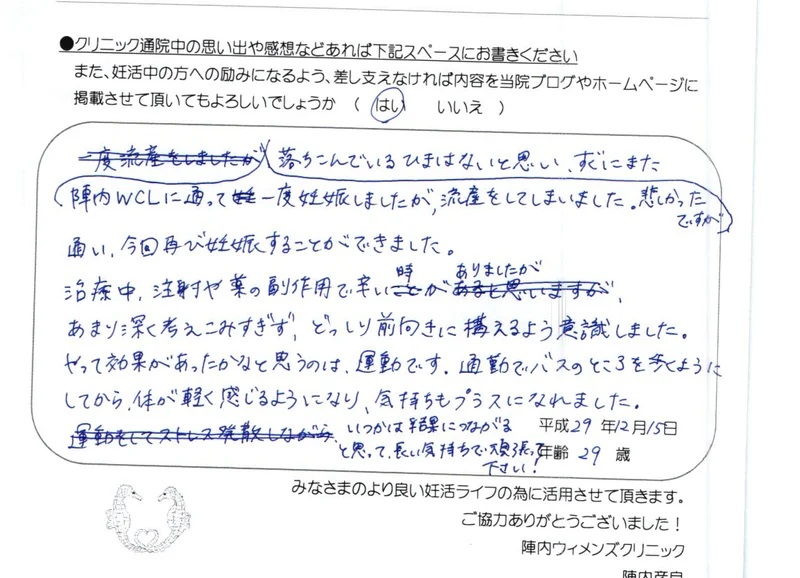 ●クリニック通院中の思い出や感想などあれば下記スペースにお書きください
また、妊活中の方への励みになるよう、差し支えなければ内容を当院ブログやホームページに
掲載させて頂いてもよろしいでしょうか （ はい いいえ ）
一度流産をしましたが 落ちこんでいるひまはないと思い、すぐにまた
陣内WCLに通って妊一度妊娠しましたが、流産をしてしまいました。悲しかった
ですが
通い、今回再び妊娠することができました。
時 ありましたが
治療中、注射や薬の副作用で辛いことがあると思いますが、
あまり深く考えこみすぎず、どっしり前向きに構えるよう意識しました。
やって効果があったかなと思うのは、運動です。通勤でバスのところを歩くように
してから、体が軽く感じるようになり、気持ちもプラスになれました。
運動をしてストレス発散しながら、いつかは結果につながる
と思って、長い気持ちで頑張って
下さい！
平成29年12月15日
年齢 29 歳
みなさまのより良い妊活ライフの為に活用させて頂きます。
ご協力ありがとうございました！
陣内ウィメンズクリニック
陣内彦良